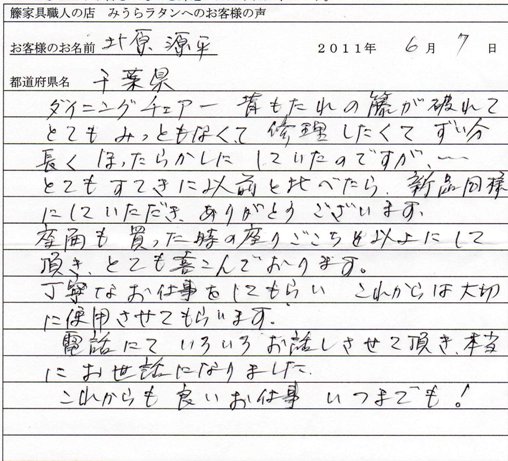 籐家具職人の店　みうらラタンへのお客様の声
お客様のお名前　北原源平　2011年　6月　7日
都道府県名　千葉県
ダイニングチェアー　背もたれの籐が破れて
とてもみっともなくて　修理したくて　ずい分
長くほったらかしにしていたのですが、〜
とてもすてきに以前と比べたら、新品同様
にしていただき、ありがとうございます。
座面も買った時の座りごこち以上にして
頂き、とても喜こんでおります。
丁寧なお仕事をしてもらい　これからは大切
に使用させてもらいます。
電話にていろいろお話しさせて頂き、本当
にお世話になりました。
これからも良いお仕事　いつまでも！